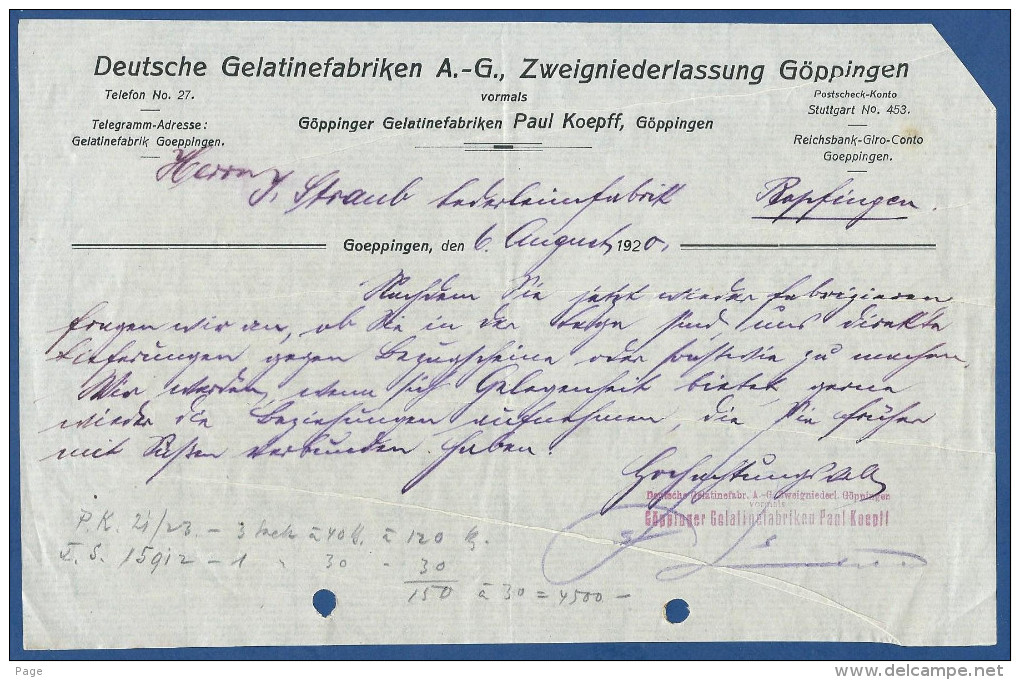 Deutsche Gelatinefabriken A.-G., Zweigniederlassung Göppingen
Telefon No. 27.
vormals
Postscheck-Konto
Stuttgart No. 453.
Telegramm-Adresse:
Gelatinefabrik Goeppingen.
Göppinger Gelatinefabriken Paul Koepff, Göppingen
Reichsbank-Giro-Conto
Goeppingen.
Herrn J. Straub Lederleimfabrik Bopfingen.
Goeppingen, den 6. August 1920.
Nachdem Sie jetzt wieder fabrizieren
fragen wir an, ob Sie in der Lage sind uns direkte
Lieferungen gegen Bezugscheine oder zu machen.
Wir werden, wenn sich Gelegenheit bietet gerne
wieder die Beziehungen aufnehmen, die Sie früher
mit Süßen verbunden haben.
Hochachtungsvoll
Deutsche Gelatinefabr. A.-G. Zweigniederl. Göppingen
vormals
Göppinger Gelatinefabriken Paul Koepff
P.K. 21/23 - 3 à 40 à 120
15912 - 1 " 30 - 30
150 à 30 = 4500 -
Page
www.delcampe.net